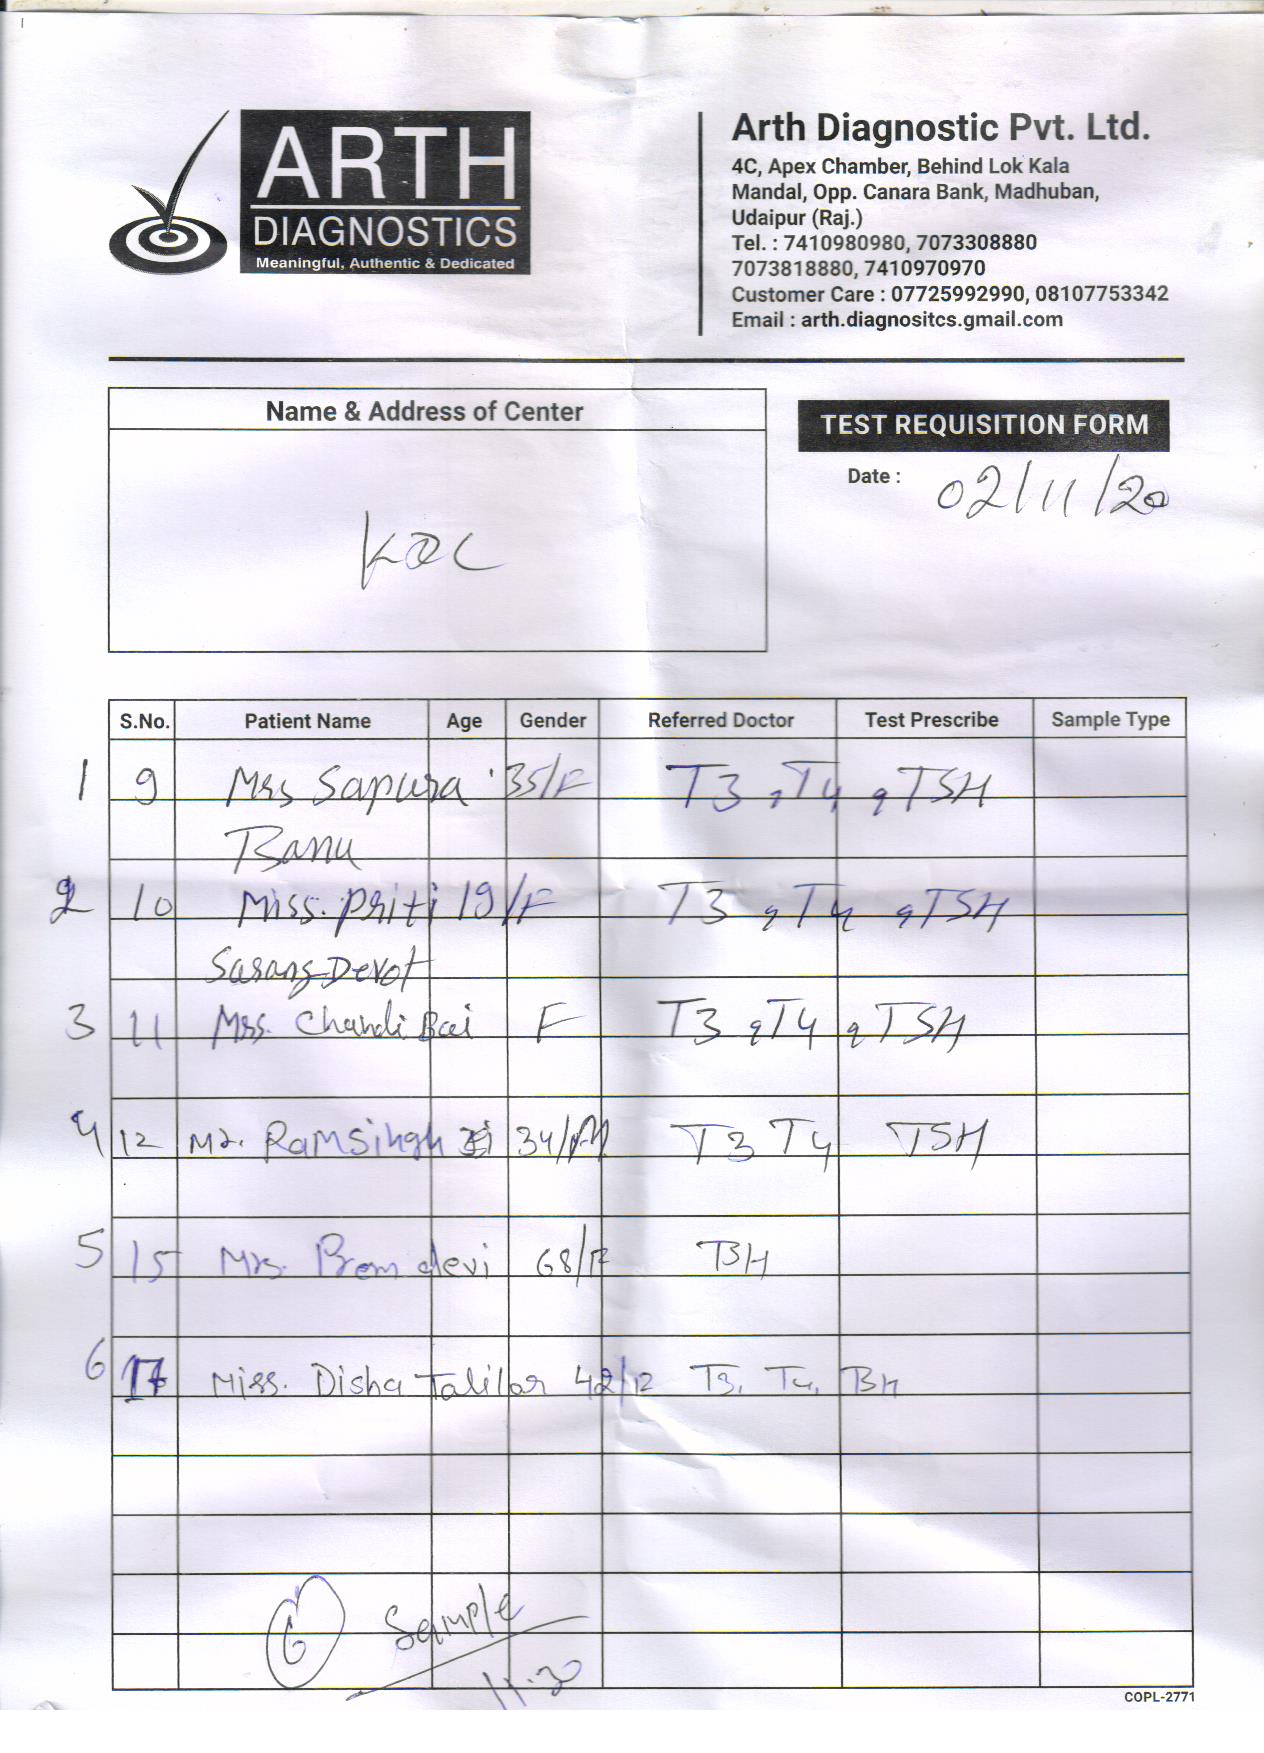 ARTH
DIAGNOSTICS
Meaningful, Authentic & Dedicated
Arth Diagnostic Pvt. Ltd.
4C, Apex Chamber, Behind Lok Kala
Mandal, Opp. Canara Bank, Madhuban,
Udaipur (Raj.)
Tel. : 7410980980, 7073308880
7073818880, 7410970970
Customer Care : 07725992990, 08107753342
Email : arth.diagnositcs.gmail.com
Name & Address of Center
TEST REQUISITION FORM
Date : 02/11/20
S.No. Patient Name Age Gender Referred Doctor Test Prescribe Sample Type
1 9 Mrs Sapura 35/F T3, T4, TSH
Banu
2 10 Miss. Priti 19/F T3, T4, TSH
Sarang Devot
3 11 Mrs. Chandi Bai F T3, T4, TSH
4 12 Mr. Ramsingh 34/M T3 T4 TSH
5 15 Mrs. Prem devi 68/F TSH
6 17 Miss. Disha 42/F T3, T4, TSH
6 Sample
11:30
COPL-2771